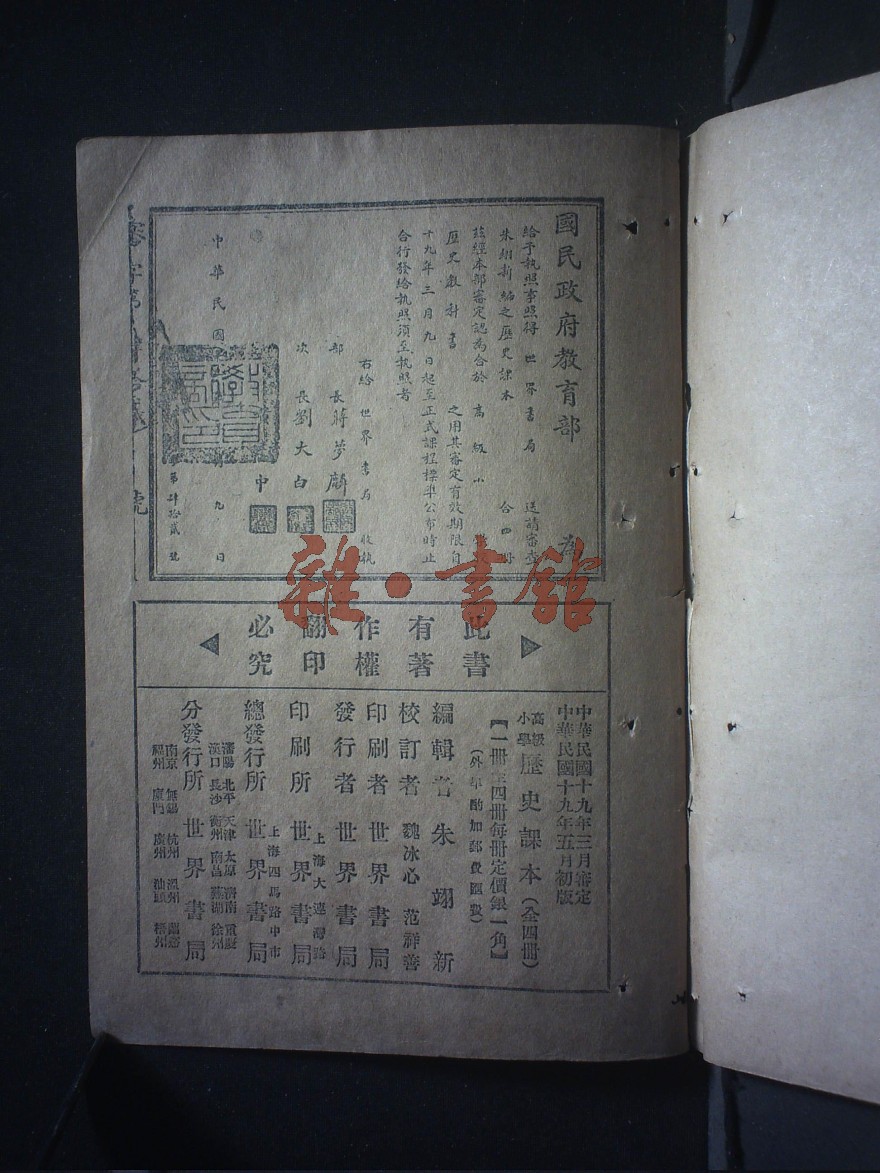 國民政府教育部 為
給予執照事照得 世界書局 送請審查
朱翊新編之歷史課本 合四冊
茲經本部審定認為合於 高級小
歷史教科書 之用其審定有效期限自
十九年三月九日起至正式課程標準公布時止
合行發給執照須至執照者
右給 世界書局 收執
部長蔣夢麟
次長劉大白
中
中華民國
九日
第肆拾貳號
號
雜·書館
此書
有著
作權
翻印
必究
中華民國十九年三月審定
中華民國十九年五月初版
高級小學 歷史課本(全四冊)
【一冊至四冊每冊定價銀一角】
(外埠酌加郵費匯費)
編輯者 朱翊新
校訂者 魏冰心 范祥善
印刷者 世界書局
發行者 世界書局
印刷所 上海大連灣路 世界書局
總發行所 上海四馬路中市 世界書局
分發行所 世界書局
瀋陽 北平 天津 太原 濟南 重慶
漢口 長沙 衡州 南昌 蕪湖 徐州
南京 無錫 杭州 溫州 蘭谿
福州 廈門 廣州 汕頭 梧州